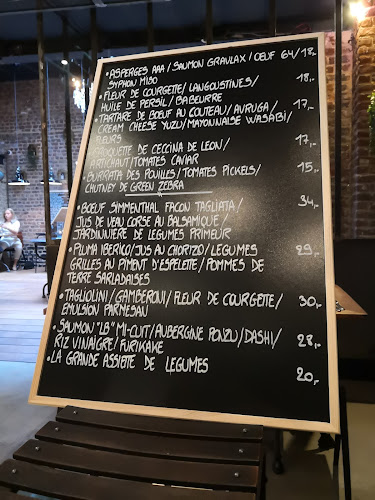 • ASPERGES AAA / SAUMON GRAVLAX / OEUF 64/ 18,-
SYPHON MISO
• FLEUR DE COURGETTE/ LANGOUSTINES/ 18,-
HUILE DE PERSIL / BABEURRE
• TARTARE DE BOEUF AU COUTEAU/ AVRUGA/ 17,-
CREAM CHEESE YUZU/ MAYONNAISE WASABI/
FLEURS
BARQUETTE DE CECCINA DE LEON/ 17,-
ARTICHAUT/TOMATES CAVIAR
• BURRATA DES POUILLES/ TOMATES PICKELS/ 15,-
CHUTNEY DE GREEN ZEBRA
• BOEUF SIMMENTHAL FACON TAGLIATA/ 34,-
JUS DE VEAU CORSÉ AU BALSAMIQUE/
JARDINNIERE DE LEGUMES PRIMEUR
• PLUMA IBERICO/JUS AU CHORIZO/LEGUMES 29,-
GRILLES AU PIMENT D'ESPELETTE/ POMMES DE
TERRE SARLADAISES
• TAGLIOLINI/ GAMBERONI/ FLEUR DE COURGETTE/ 30,-
EMULSION PARMESAN
• SAUMON "LB" MI-CUIT/AUBERGINE PONZU/DASHI/ 28,-
RIZ VINAIGRE/ FURIKAKE
• LA GRANDE ASSIETE DE LEGUMES 20,-